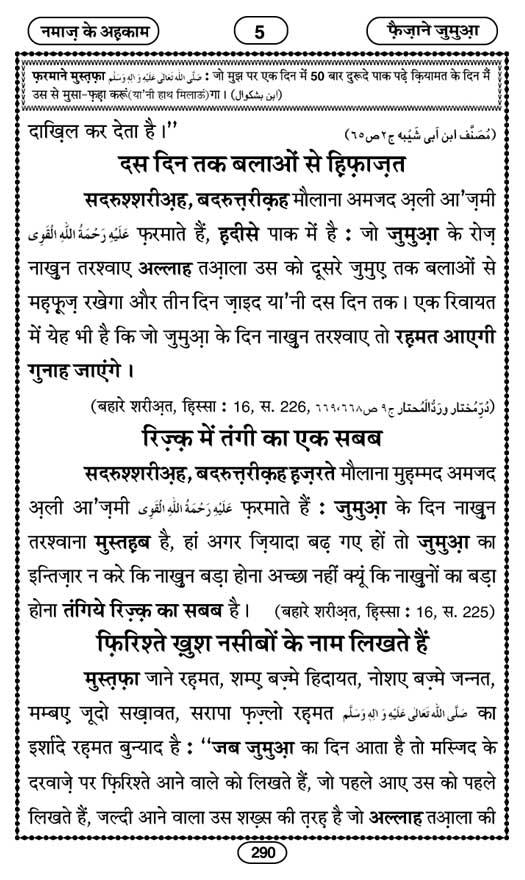 नमाज़ के अहकाम
5
फ़ैज़ाने जुमुआ़
फ़रमाने मुस्तफ़ा صَلَّى اللهُ تَعَالٰى عَلَيْهِ وَاٰلِهٖ وَسَلَّم : जो मुझ पर एक दिन में 50 बार दुरूदे पाक पढ़े क़ियामत के दिन मैं
उस से मुसा-फ़हा करूं(या'नी हाथ मिलाऊं)गा। (ابن بشكوال)
दाख़िल कर देता है।'' (مُصَنَّف ابن اَبی شَیْبه ج٢ص٦٥)
दस दिन तक बलाओं से हि़फ़ाज़त
सदरुश्शरीअ़ह, बदरुत्त़रीक़ह मौलाना अमजद अ़ली आ'ज़मी
عَلَيْهِ رَحْمَةُ اللهِ الْقَوِى फ़रमाते हैं, ह़दीसे पाक में है : जो जुमुआ़ के रोज़
नाख़ुन तरश्वाए अल्लाह तआ़ला उस को दूसरे जुमुए़ तक बलाओं से
मह़फ़ूज़ रखेगा और तीन दिन ज़ाइद या'नी दस दिन तक। एक रिवायत
में येह भी है कि जो जुमुआ़ के दिन नाख़ुन तरश्वाए तो रह़मत आएगी
गुनाह जाएंगे।
(बहारे शरीअ़त, हि़स्सा : 16, स. 226, دُرِّمُختار ورَدُّالْمُحتار ج٩ ص٦٦٨،٦٦٩)
रिज़्क़ में तंगी का एक सबब
सदरुश्शरीअ़ह, बदरुत्त़रीक़ह ह़ज़रते मौलाना मुह़म्मद अमजद
अ़ली आ'ज़मी عَلَيْهِ رَحْمَةُ اللهِ الْقَوِى फ़रमाते हैं : जुमुआ़ के दिन नाख़ुन
तरश्वाना मुस्तह़ब है, हां अगर ज़ियादा बढ़ गए हों तो जुमुआ़ का
इन्तिज़ार न करे कि नाख़ुन बड़ा होना अच्छा नहीं क्यूं कि नाख़ुनों का बड़ा
होना तंगिये रिज़्क़ का सबब है। (बहारे शरीअ़त, हि़स्सा : 16, स. 225)
फ़िरिश्ते ख़ुश नसीबों के नाम लिखते हैं
मुस्त़फ़ा जाने रह़मत, शम्ए़ बज़्मे हिदायत, नोशए बज़्मे जन्नत,
मम्बए जूदो सख़ावत, सरापा फ़ज़्लो रह़मत صَلَّى اللهُ تَعَالٰى عَلَيْهِ وَاٰلِهٖ وَسَلَّم का
इर्शादे रह़मत बुन्याद है : ''जब जुमुआ़ का दिन आता है तो मस्जिद के
दरवाज़े पर फ़िरिश्ते आने वाले को लिखते हैं, जो पहले आए उस को पहले
लिखते हैं, जल्दी आने वाला उस शख़्स की त़रह़ है जो अल्लाह तआ़ला की
290